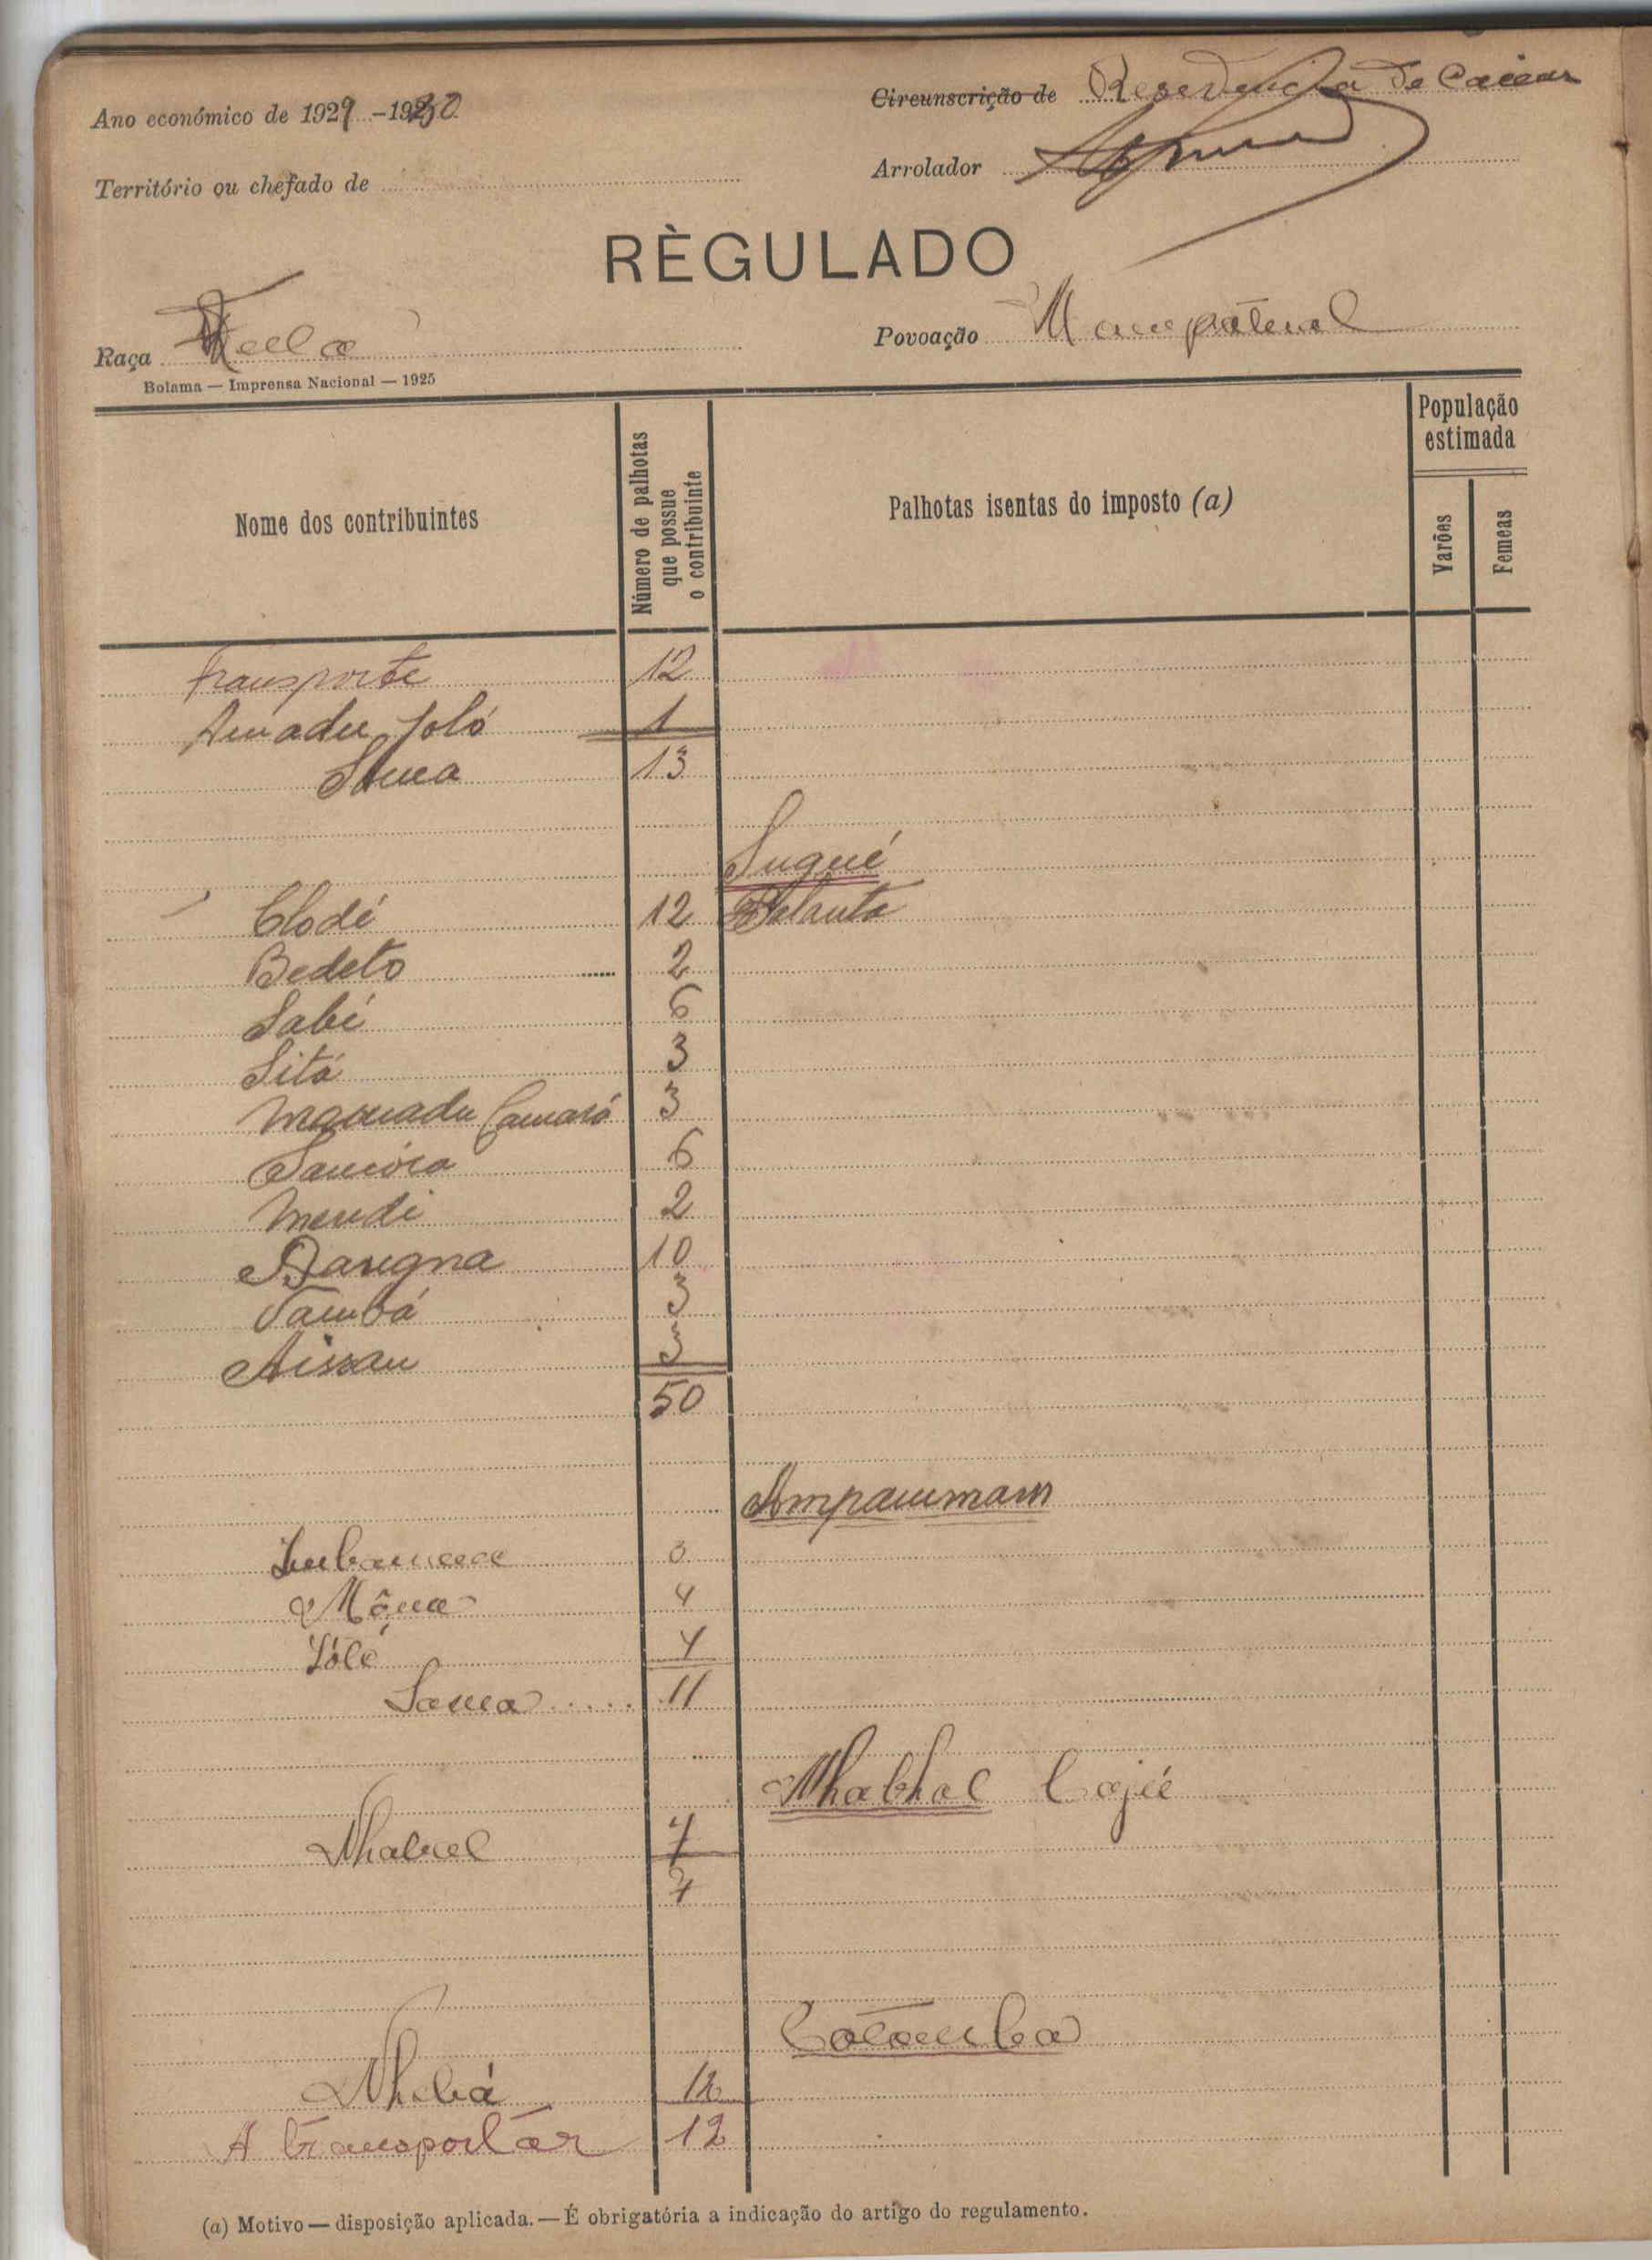 Ano económico de 1929-1930
Circunscrição de Residencia de Cacine
Território ou chefado de
Arrolador
RÈGULADO
Raça Fulla
Povoação Mampatual
Bolama — Imprensa Nacional — 1925
Nome dos contribuintes
Número de palhotas que possue o contribuinte
Palhotas isentas do imposto (a)
População estimada
Varões
Femeas
Transporte 12
Amadu Joló 1
Soma 13
Sugué
Clodé 12 Balanta
Bedeto 2
Sabé 6
Sitá 3
Mamadu Camará 3
6
Mendi 2
10
Sambá 3
Aissau 3
50
3
Môna 4
Iólé 4
Soma ..... 11
Nhabual 7
7
Catomba
Nhabá 12
A transportar 12
(a) Motivo — disposição aplicada. — É obrigatória a indicação do artigo do regulamento.